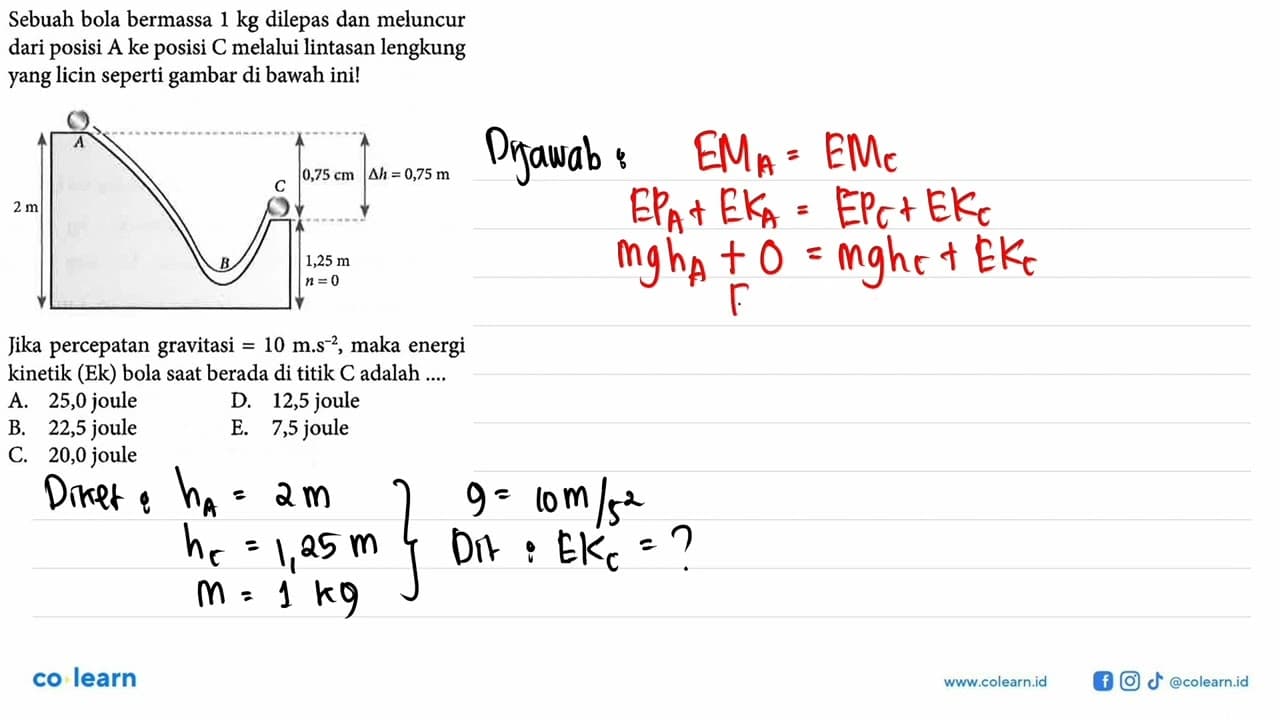 Sebuah bola bermassa 1 kg dilepas dan meluncur
dari posisi A ke posisi C melalui lintasan lengkung
yang licin seperti gambar di bawah ini!
A
C
0,75 cm
Δh = 0,75 m
2 m
B
1,25 m
n = 0
Jika percepatan gravitasi = 10 m.s⁻², maka energi
kinetik (Ek) bola saat berada di titik C adalah ....
A. 25,0 joule D. 12,5 joule
B. 22,5 joule E. 7,5 joule
C. 20,0 joule
Diket : hA = 2 m
hC = 1,25 m
m = 1 kg
g = 10 m/s²
Dit : EKC = ?
Dijawab :
EMA = EMC
EPA + EKA = EPC + EKC
mghA + 0 = mghC + EKC
co learn
www.colearn.id
@colearn.id